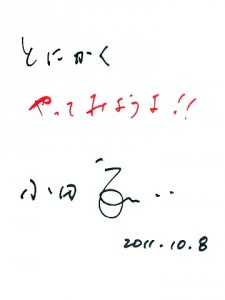 とにかく
やってみようよ!!
小田
2011.10.8